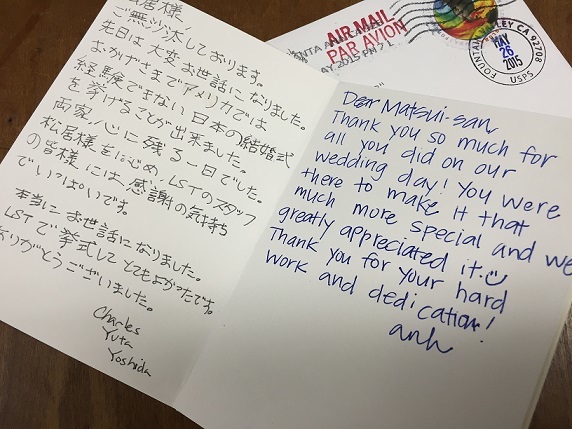 松居様、
ご無沙汰しております。
先日は大変お世話になりました。
おかげさまでアメリカでは
経験できない日本の結婚式
を挙げることが出来ました。
両家心に残る一日でした。
松居様をはじめ、LSTのスタッフ
の皆様には、感謝の気持ち
でいっぱいです。
本当にお世話になりました。
LSTで挙式してとてもよかったです。
ありがとうございました。
Charles
Yuta
Yoshida
Dear Matsui-san,
Thank you so much for
all you did on our
wedding day! You were
there to make it that
much more special and we
greatly appreciated it.
Thank you for your hard
work and dedication!
anh
AIR MAIL
PAR AVION
2015 PM 7 L
FOUNTAIN VALLEY CA 92708
MAY
26
2015
USPS